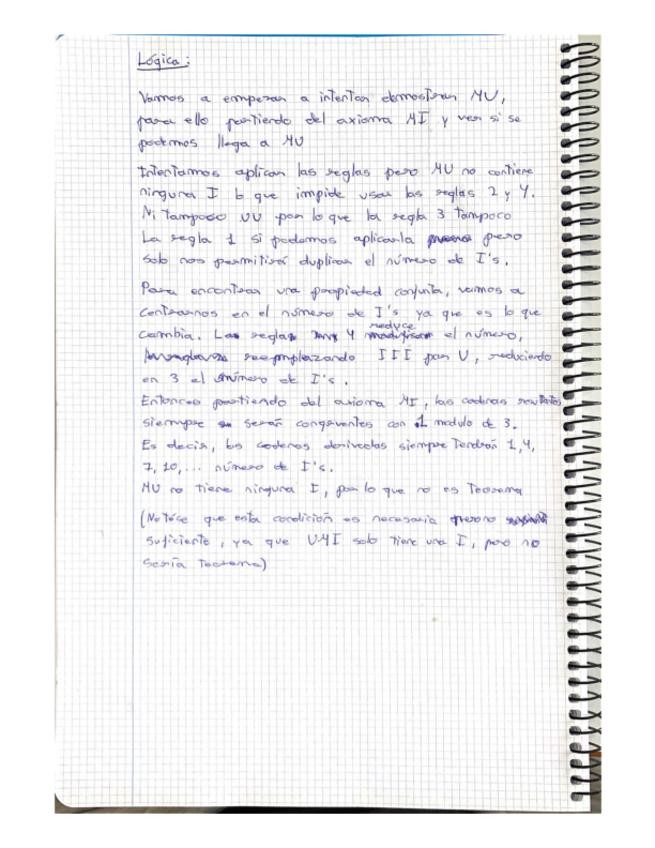 Lógica:
Vamos a empezar a intentar demostrar MU,
para ello partiendo del axioma MI y ver si se
podemos llega a MU
Intentamos aplicar las reglas pero MU no contiene
ninguna I lo que impide usar las reglas 2 y 4.
Ni tampoco UU por lo que la regla 3 tampoco
La regla 1 si podemos aplicarla pero
solo nos permitirá duplicar el número de I's.
Para encontrar una propiedad conjunta, vamos a
centrarnos en el número de I's ya que es lo que
cambia. La regla 4 reduce el número,
reemplazando III por U, reduciendo
en 3 el número de I's.
Entonces partiendo del axioma MI, las cadenas resultantes
siempre serán congruentes con 1 modulo de 3.
Es decir, las cadenas derivadas siempre tendrán 1, 4,
7, 10, ... número de I's.
MU no tiene ninguna I, por lo que no es Teorema
(Notése que esta condición es necesaria pero no
suficiente, ya que UMI solo tiene una I, pero no
sería Teorema)